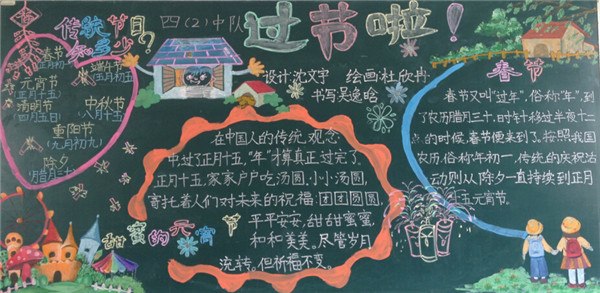 传统节日
知多少?
春节
正月初一
元宵节
正月十五
清明节
四月五日
端午节
五月初五
中秋节
八月十五
重阳节
九月初九
除夕
腊月三十
四(2)中队
过节啦!
设计:沈文宇 绘画:杜欣书
书写吴逸晗
在中国人的传统观念
中,过了正月十五,“年”才算真正过完了。
正月十五,家家户户吃汤圆,小小汤圆,
寄托着人们对未来的祝福:团团圆圆,
平平安安,甜甜蜜蜜,
和和美美。尽管岁月
流转,但祈福不变。
甜蜜的元宵节
春节
春节又叫“过年”,俗称“年”,到
了农历腊月三十,时针移过半夜十二
点的时候,春节便来到了。按照我国
农历,俗称年初一,传统的庆祝活
动则从除夕一直持续到正月
十五元宵节。